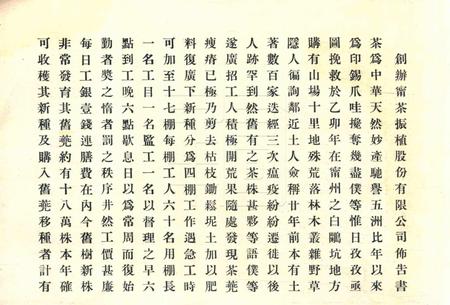 創辦甯茶振植股份有限公司佈告書
茶為中華天然妙產馳譽五洲比年以來
為印錫爪哇攙奪幾盡僕等惟日孜孜亟
圖挽救於乙卯年在甯州之白鷳坑地方
購有山場十里地殊荒落林木叢雜野草
隱人徧詢鄰近土人僉稱廿年前本有土
著數百家迭經三次瘟疫紛紛遷徙以後
人跡罕到然舊有之茶株甚夥等語僕等
遂廣招工人積極開荒果隨處發現茶蔸
瘦瘠已極乃剪去枯枝鋤鬆坭土加以肥
料復廣下新種分為四棚工作遇急工時
可加至十七棚每棚工人六十名用棚長
一名工目一名監工一名以督理之早六
點到工晚六點歇息日以為常周而復始
勤者獎之惰者罰之秩序井然工價甚廉
每日工銀壹錢連膳費在內今舊樹新株
非常發育其舊蔸約有十八萬株本年確
可收穫其新種及購入舊蔸移種者計有